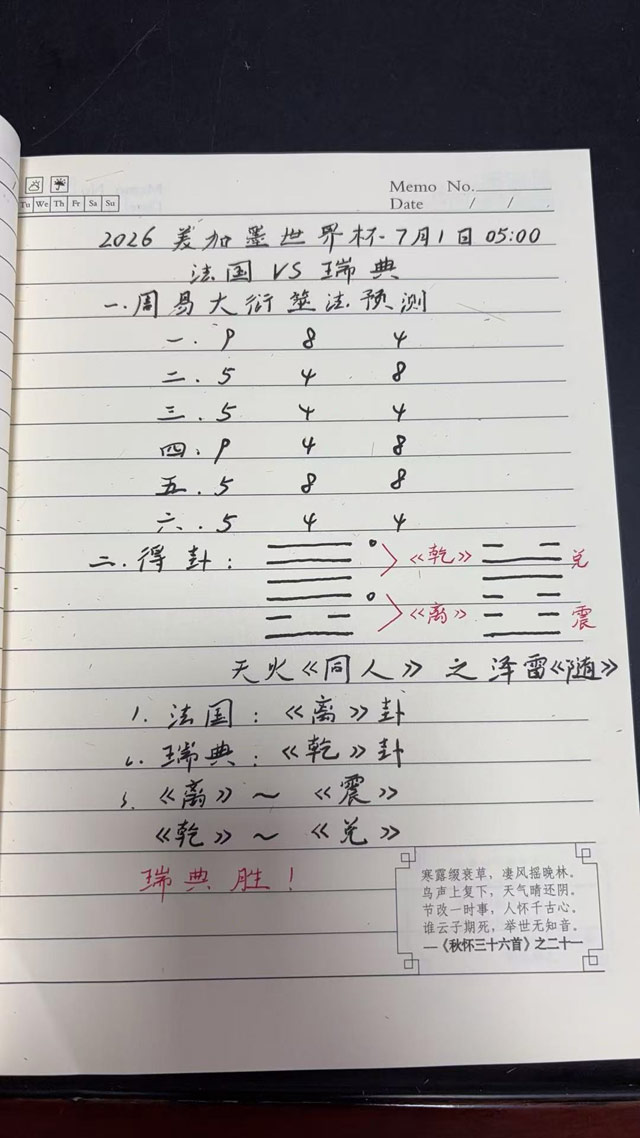 Memo No.
Tu We Th Fr Sa Su
Date / /
2026 美加墨世界杯·7月1日 05:00
法国 VS 瑞典
一.周易大衍筮法预测
一. 9 8 4
二. 5 4 8
三. 5 4 4
四. 9 4 8
五. 5 8 8
六. 5 4 4
二.得卦: 《乾》 兑
《离》 震
天火《同人》之泽雷《随》
1. 法国:《离》卦
2. 瑞典:《乾》卦
3. 《离》~《震》
《乾》~《兑》
瑞典胜!
寒露缀衰草,凄风摇晚林。
鸟声上复下,天气晴还阴。
节改一时事,人怀千古心。
谁云子期死,举世无知音。
—《秋怀三十六首》之二十一